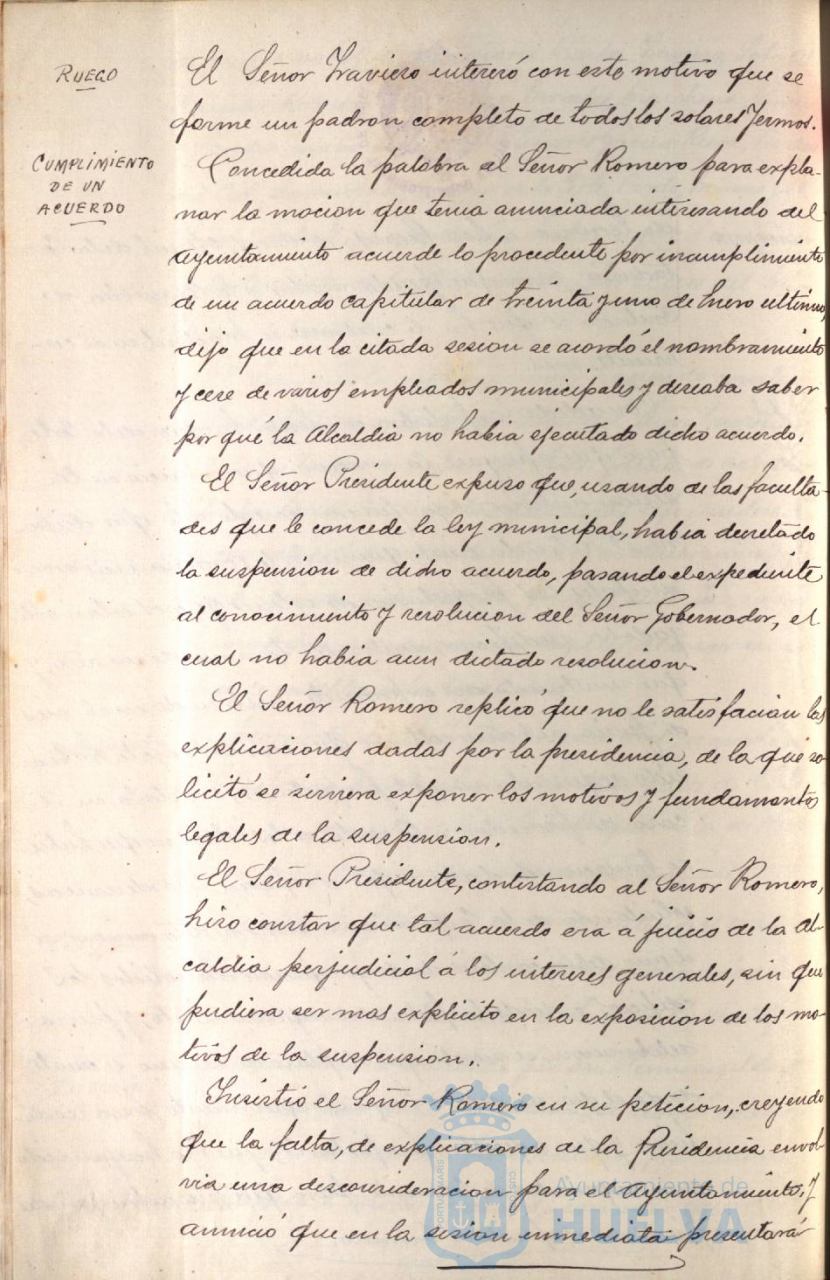 RUEGO
El Señor Traviezo interesó con este motivo que se
forme un padron completo de todos los solares Yermos.
CUMPLIMIENTO
DE UN
ACUERDO
Concedida la palabra al Señor Romero para expla-
nar la mocion que tenia anunciada interesando del
Ayuntamiento acuerde lo procedente por incumplimiento
de un acuerdo capitular de treinta y uno de Enero ultimo,
dijo que en la citada sesion se acordó el nombramiento
y cese de varios empleados municipales y deseaba saber
por qué la Alcaldia no habia ejecutado dicho acuerdo.
El Señor Presidente expuso que, usando de las faculta-
des que le concede la ley municipal, habia decretado
la suspension de dicho acuerdo, pasando el expediente
al conocimiento y resolucion del Señor Gobernador, el
cual no habia aun dictado resolucion.
El Señor Romero replicó que no le satisfacian las
explicaciones dadas por la presidencia, de la que so
licitó se sirviera exponer los motivos y fundamentos
legales de la suspension.
El Señor Presidente, contestando al Señor Romero,
hizo constar que tal acuerdo era á juicio de la Al-
caldia perjudicial á los intereses generales, sin que
pudiera ser mas explicito en la exposicion de los mo-
tivos de la suspension.
Insistió el Señor Romero en su peticion, creyendo
que la falta, de explicaciones de la Presidencia envol-
via una desconsideracion para el Ayuntamiento, y
anunció que en la sesion inmediata presentará
Ayuntamiento de
HUELVA